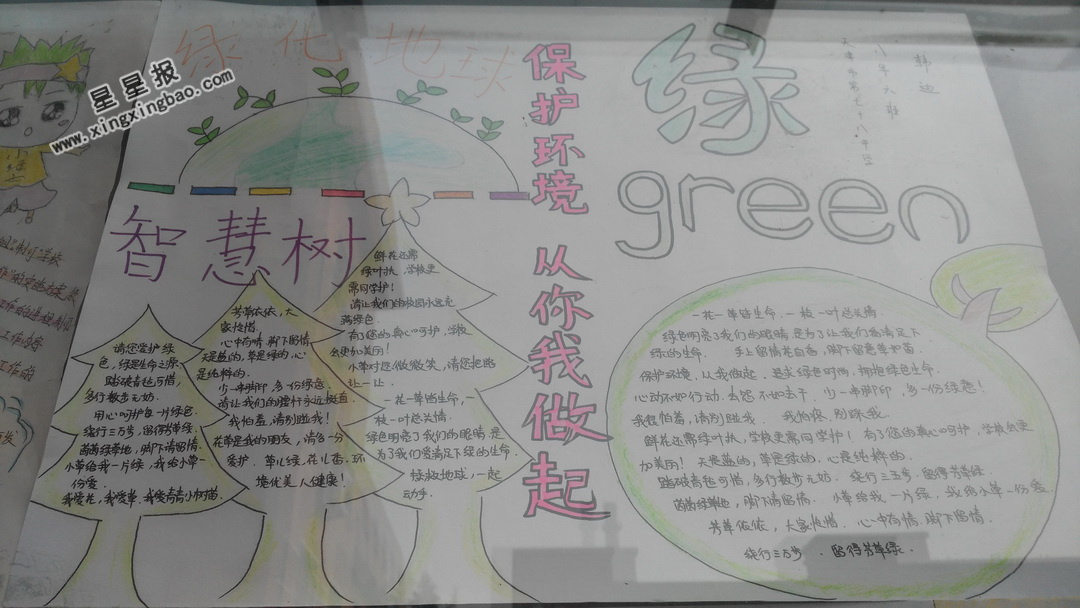 星星报
www.xingxingbao.com
绿化地球
智慧树
保护环境 从你我做起
绿
green
韩迪
八年六班
请您爱护绿
色，绿是生命之源
踏破青色可惜，
多行数步无妨。
用心呵护每一片绿色
绕行三五步，留得芳草绿。
茵茵绿草地，脚下请留情。
小草给我一片绿，我给小草一
份爱。
我爱花，我爱草，我爱青青小树苗
芳草依依，大
家怜惜。
心中有情，脚下留情
天是蓝的，草是绿的，心
是纯粹的。
少一串脚印，多一份绿意。
请让我们的腰杆永远挺直
我怕羞，请别碰我！
花草是我的朋友，请多一分
爱护。草儿绿，花儿香，环
境优美人健康！
鲜花还需
绿叶扶，学校更
需同学护！
请让我们的校园永远充
满绿色。
有了您的真心呵护，学校
会更加美丽！
小草对您做微笑，请您把路
让一让。
一花一草皆生命，一
枝一叶总关情。
绿色明亮了我们的眼睛，是
为了我们爱满足下绿的生命。
拯救地球，一起
动手。
一花一草皆生命，一枝一叶总关情
绿色明亮了我们的眼睛，是为了让我们爱满足下
绿的生命。手上留情花自香，脚下留意草如茵。
保护环境，从我做起。追求绿色时尚，拥抱绿色生命。
心动不如行动，去怨不如去干，少一串脚印，多一份绿意！
我很怕羞，请别碰我。我怕疼，别踩我。
鲜花还需绿叶扶，学校更需同学护！有了您的真心呵护，学校会更
加美丽！天是蓝的，草是绿的，心是纯粹的。
踏破青色可惜，多行数步无妨。绕行三五步，留得芳草绿。
茵茵绿草地，脚下请留情。小草给我一片绿，我给小草一份爱。
芳草依依，大家怜惜。心中有情，脚下留情。
绕行三五步，留得芳草绿。